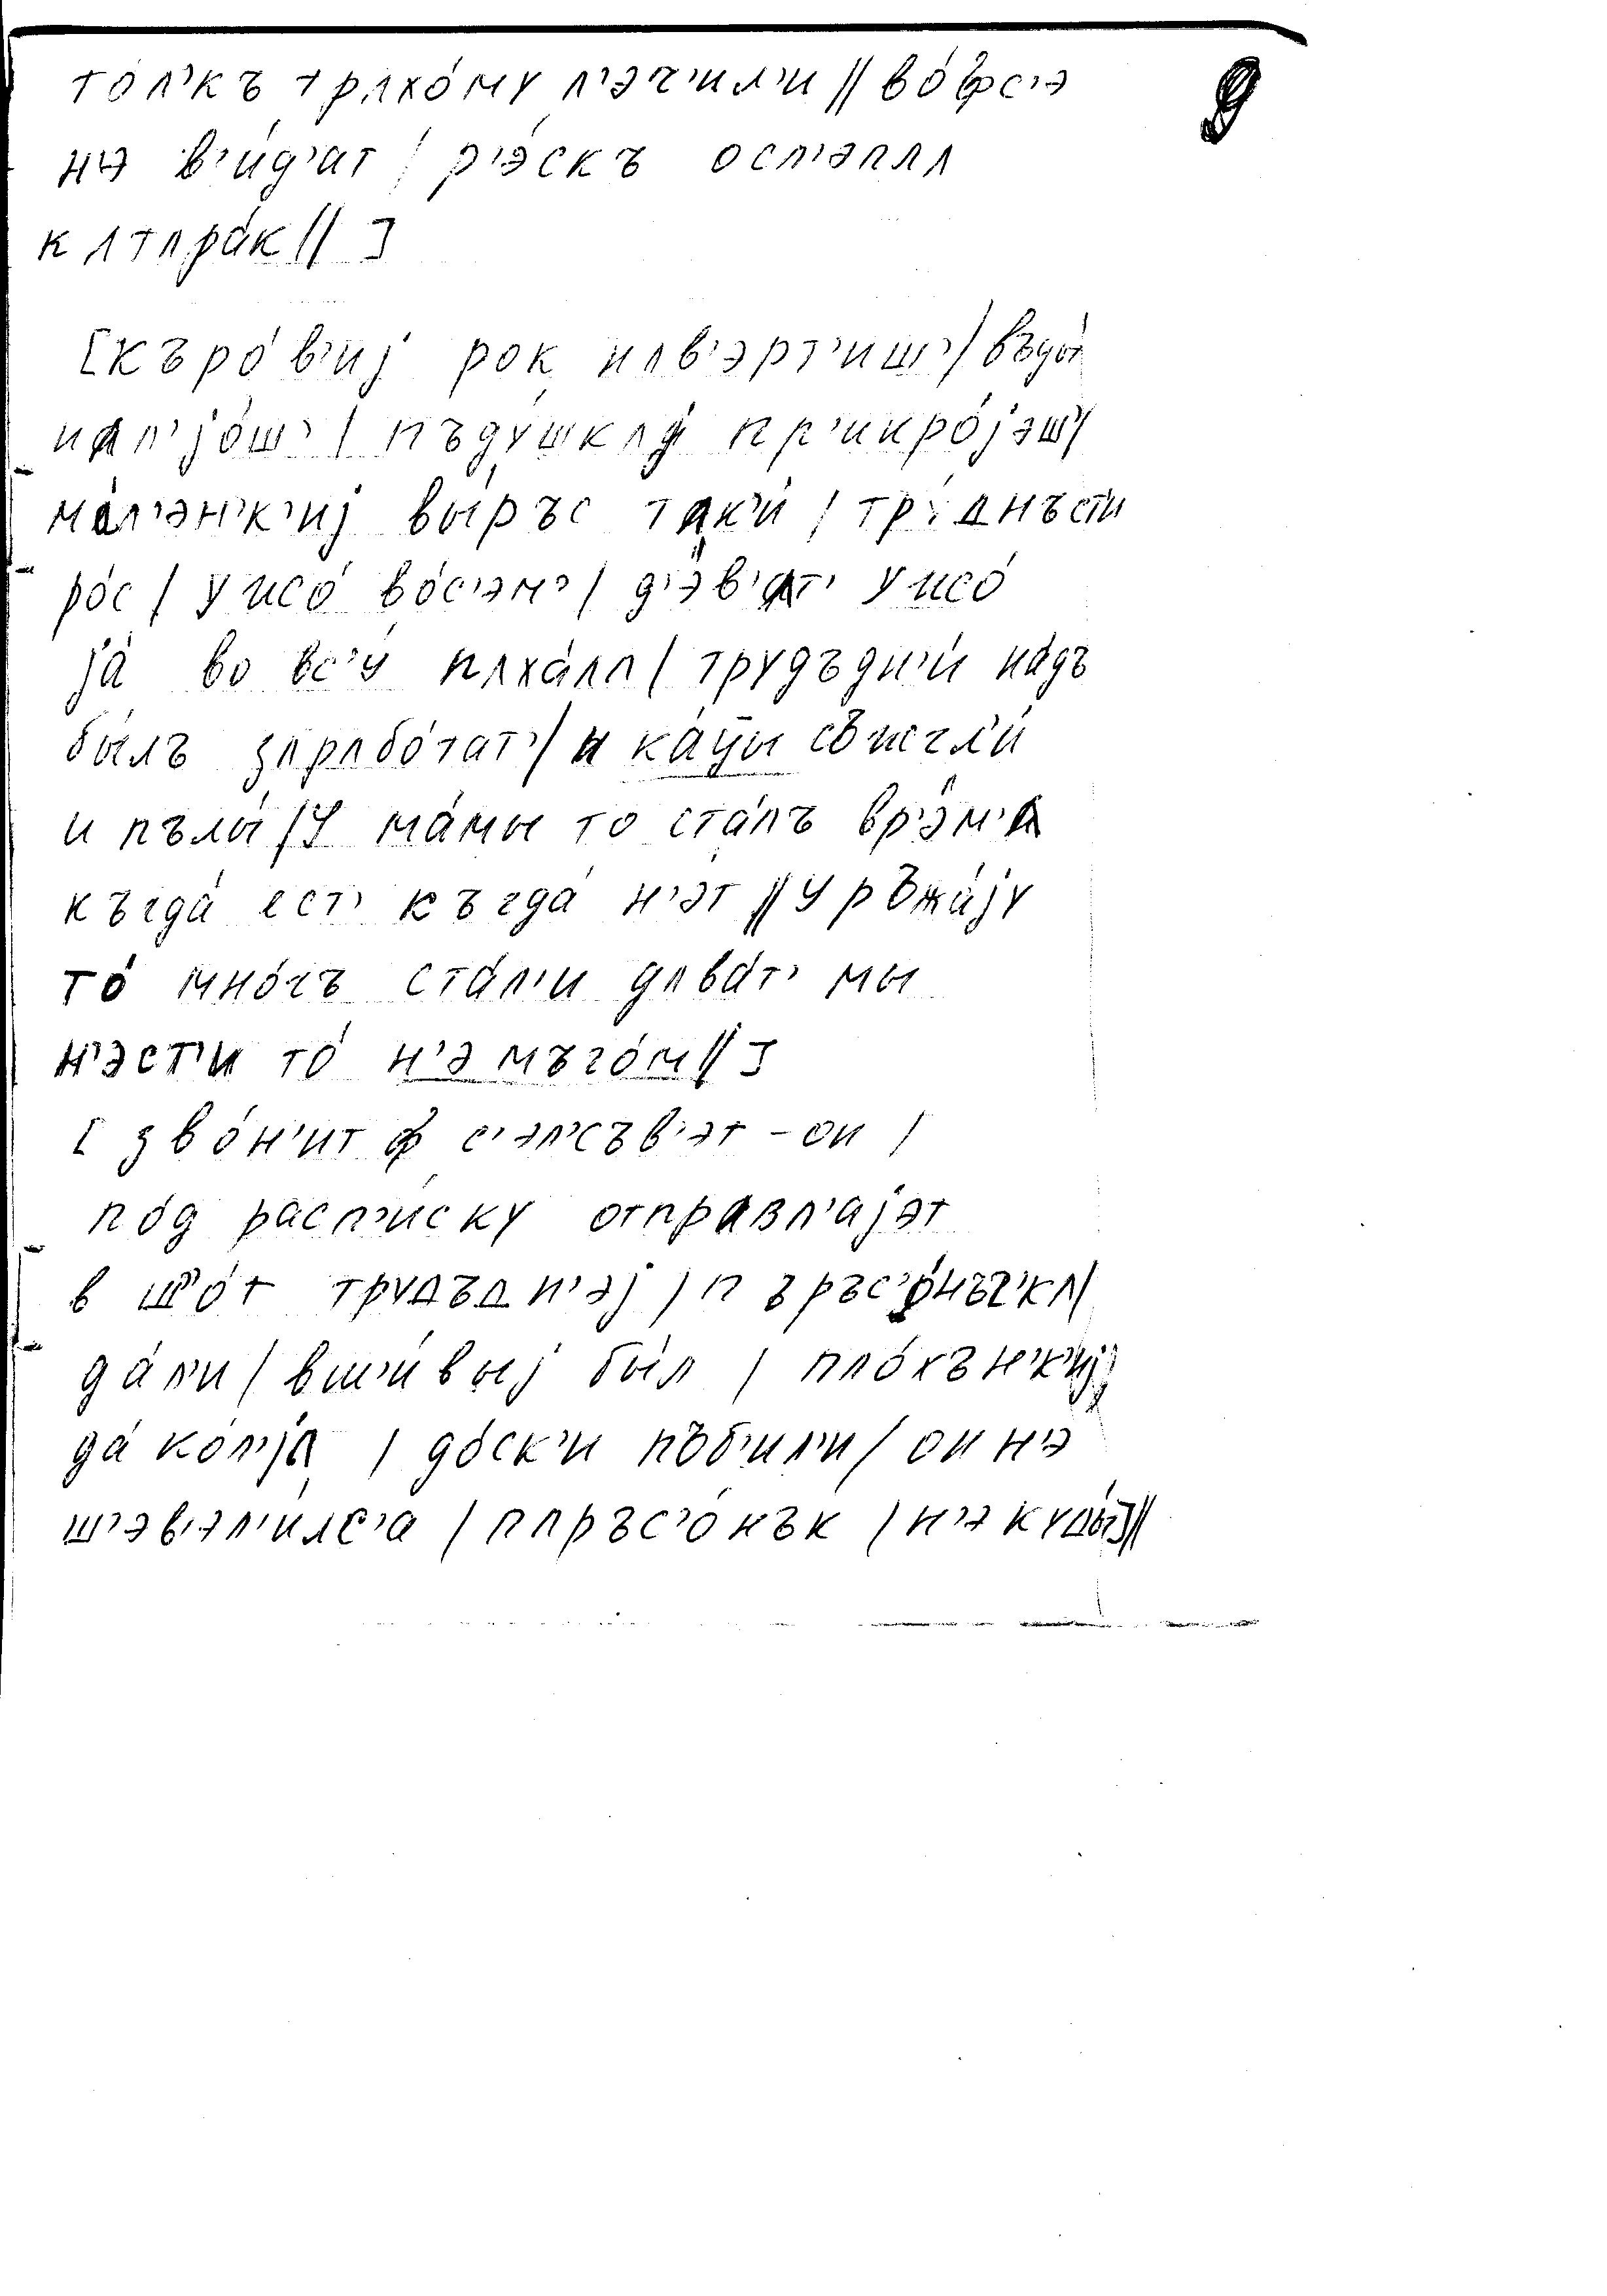 9
то́л'къ трʌхо́му л'эч'ил'и || во́фс'э
н'э в'и́д'ат / р'э́скъ осл'эплʌ
к ʌтпра́к || ]
[къро́в'иj рок нʌв'э́рт'иш' / въды́
нал'jо́ш' / пъду́шкʌj пр'икро́jэш' /
ма́л'эн'к'иj вы́ръс так'и́ / тру́днъсти
ро́с / у нсо́ во́с'эм' / д'э́в'ат' у нсо́
jа́ во вс'у́ пʌха́лʌ / трудъдн'и́ на́дъ
бы́лъ зʌрʌбо́тат' / и ка́цы съжгл'и́
и пълы́ / У ма́мы то ста́лъ вр'э́м'а
къгда́ ест' къгда́ н'э́т || У ръжа́jу
то́ мно́гъ ста́л'и дʌва́т' мы
н'эст'и́ то́ н'э мъго́м || ]
[ зво́н'ит ф с'эл'съв'э́т – он /
по́д расп'и́ску отправл'а́jэт
в ш'о́т трудъдн'э́j / п ъръс'о́нъч'кʌ /
да́л'и / вш'и́выj бы́л / пло́хън'к'иj /
да́ ко́л'jа / до́ск'и пъб'и́л'и / он н'э
ш'эв'эл'и́лс'а / пʌръс'о́нък / н'э куды́ ] ||